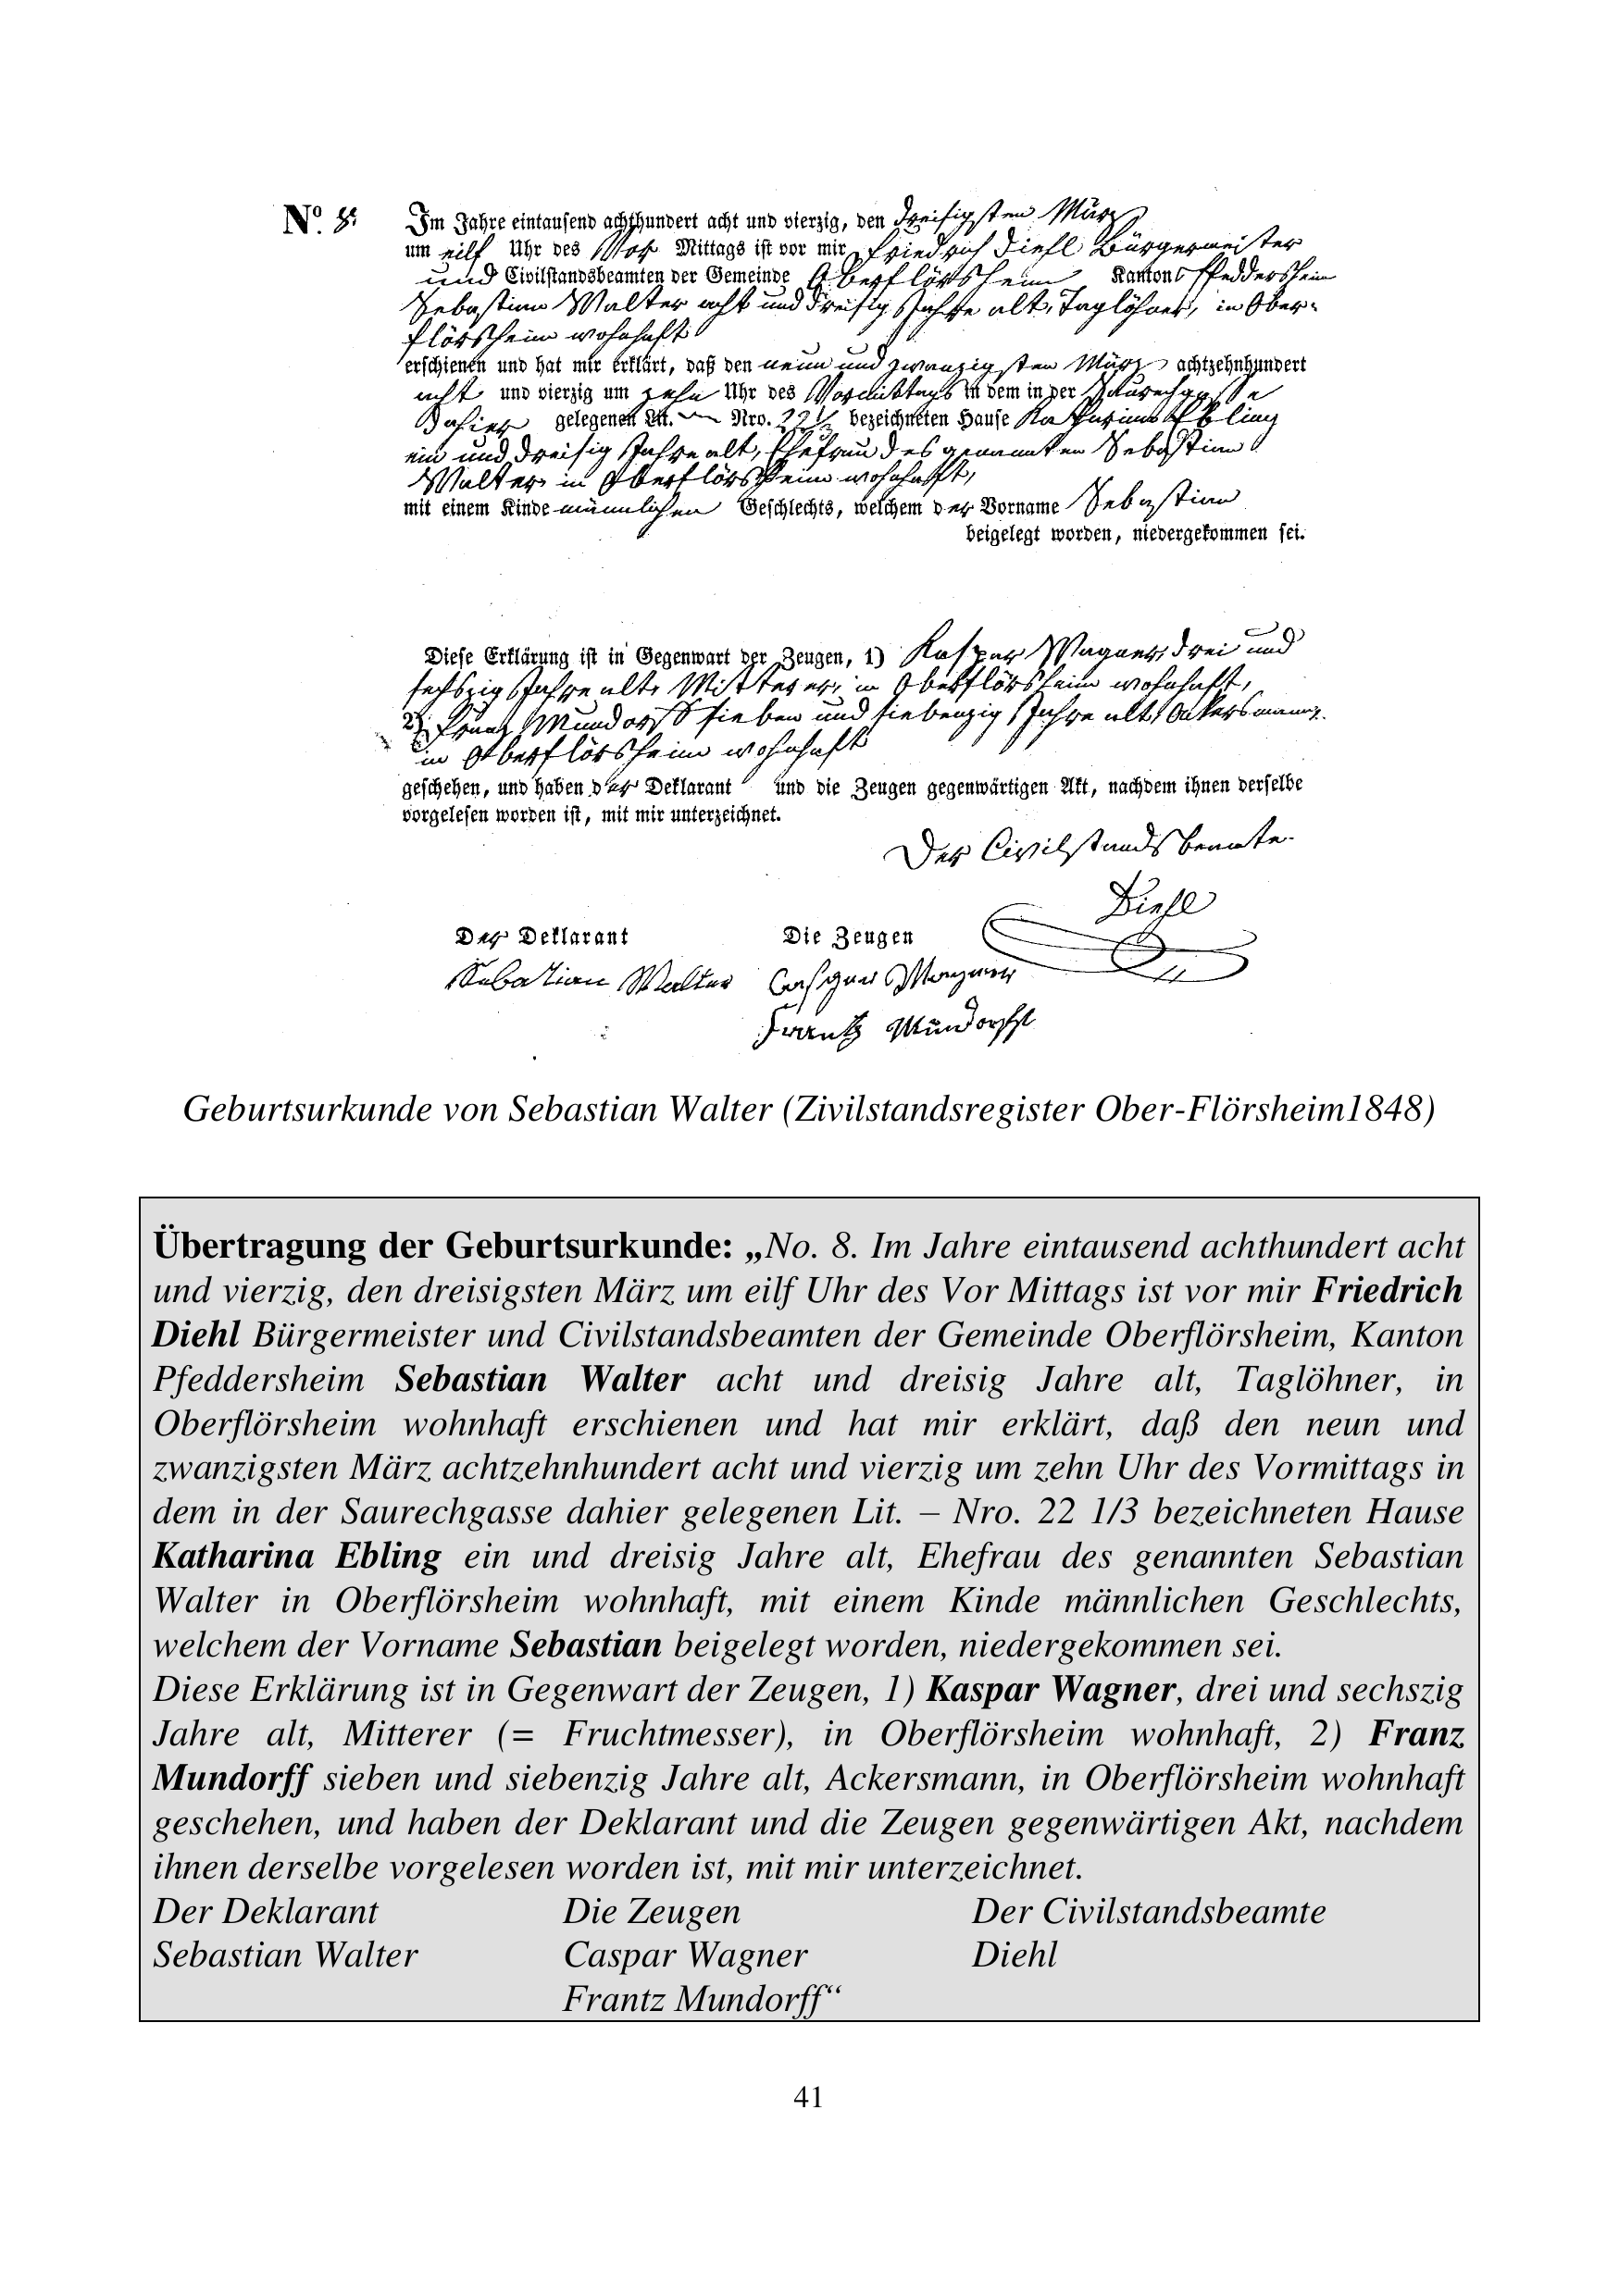 No. 8.
Im Jahre eintausend achthundert acht und vierzig, den dreisigsten März
um eilf Uhr des Vor Mittags ist vor mir Friedrich Diehl Bürgermeister
und Civilstandsbeamten der Gemeinde Oberflörsheim Kantons Pfeddersheim
Sebastian Walter acht und dreisig Jahre alt, Taglöhner, in Ober-
flörsheim wohnhaft
erschienen und hat mir erklärt, daß den neun und zwanzigsten März achtzehnhundert
acht und vierzig um zehn Uhr des Vormittags in dem in der Saurechgasse
dahier gelegenen Lit. — Nro. 22 bezeichneten Hause Katharina Ebling
ein und dreisig Jahre alt, Ehefrau des genannten Sebastian
Walter in Oberflörsheim wohnhaft,
mit einem Kinde männlichen Geschlechts, welchem der Vorname Sebastian
beigelegt worden, niedergekommen sei.
Diese Erklärung ist in Gegenwart der Zeugen, 1) Kaspar Wagner, drei und
sechszig Jahre alt, Mitterer, in Oberflörsheim wohnhaft,
2) Franz Mundorff sieben und siebenzig Jahre alt, Ackersmann,
in Oberflörsheim wohnhaft
geschehen, und haben der Deklarant und die Zeugen gegenwärtigen Akt, nachdem ihnen derselbe
vorgelesen worden ist, mit mir unterzeichnet.
Der Civilstandsbeamte
Diehl
Der Deklarant Die Zeugen
Sebastian Walter Caspar Wagner
Frantz Mundorff
Geburtsurkunde von Sebastian Walter (Zivilstandsregister Ober-Flörsheim1848)
Übertragung der Geburtsurkunde: „No. 8. Im Jahre eintausend achthundert acht
und vierzig, den dreisigsten März um eilf Uhr des Vor Mittags ist vor mir Friedrich
Diehl Bürgermeister und Civilstandsbeamten der Gemeinde Oberflörsheim, Kanton
Pfeddersheim Sebastian Walter acht und dreisig Jahre alt, Taglöhner, in
Oberflörsheim wohnhaft erschienen und hat mir erklärt, daß den neun und
zwanzigsten März achtzehnhundert acht und vierzig um zehn Uhr des Vormittags in
dem in der Saurechgasse dahier gelegenen Lit. – Nro. 22 1/3 bezeichneten Hause
Katharina Ebling ein und dreisig Jahre alt, Ehefrau des genannten Sebastian
Walter in Oberflörsheim wohnhaft, mit einem Kinde männlichen Geschlechts,
welchem der Vorname Sebastian beigelegt worden, niedergekommen sei.
Diese Erklärung ist in Gegenwart der Zeugen, 1) Kaspar Wagner, drei und sechszig
Jahre alt, Mitterer (= Fruchtmesser), in Oberflörsheim wohnhaft, 2) Franz
Mundorff sieben und siebenzig Jahre alt, Ackersmann, in Oberflörsheim wohnhaft
geschehen, und haben der Deklarant und die Zeugen gegenwärtigen Akt, nachdem
ihnen derselbe vorgelesen worden ist, mit mir unterzeichnet.
Der Deklarant Die Zeugen Der Civilstandsbeamte
Sebastian Walter Caspar Wagner Diehl
Frantz Mundorff“
41